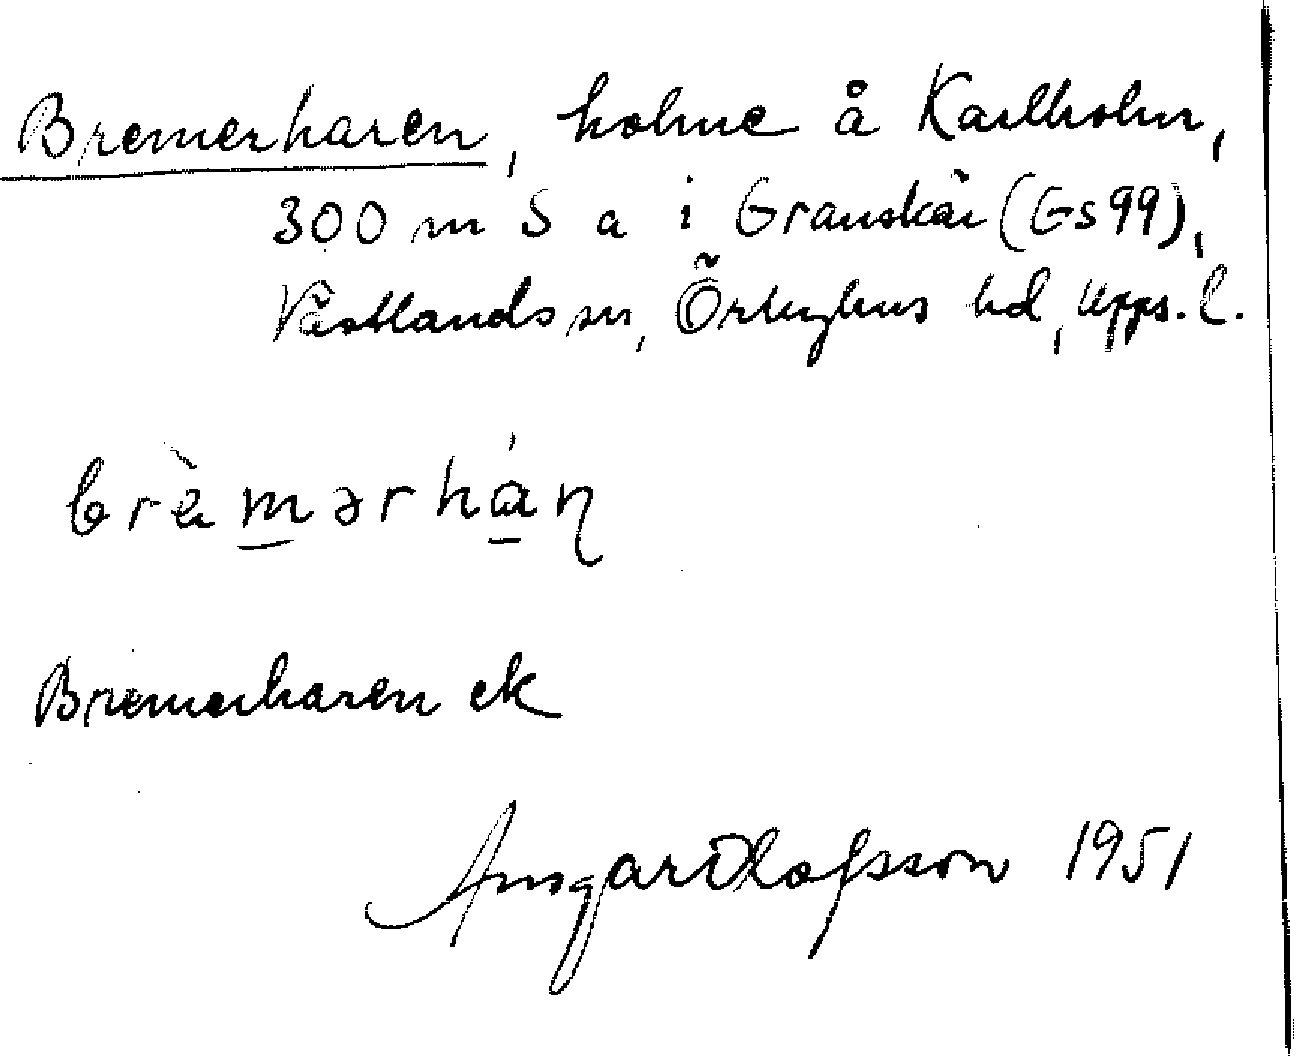 Bremerhaven, holme å Karlholm,
300 m S a i Granskär (Gs 99),
Västlands sn, Örbyhus hd, Upps. l.
brèmərhán
Bremerhaven ek
Ansgar Olofsson 1951